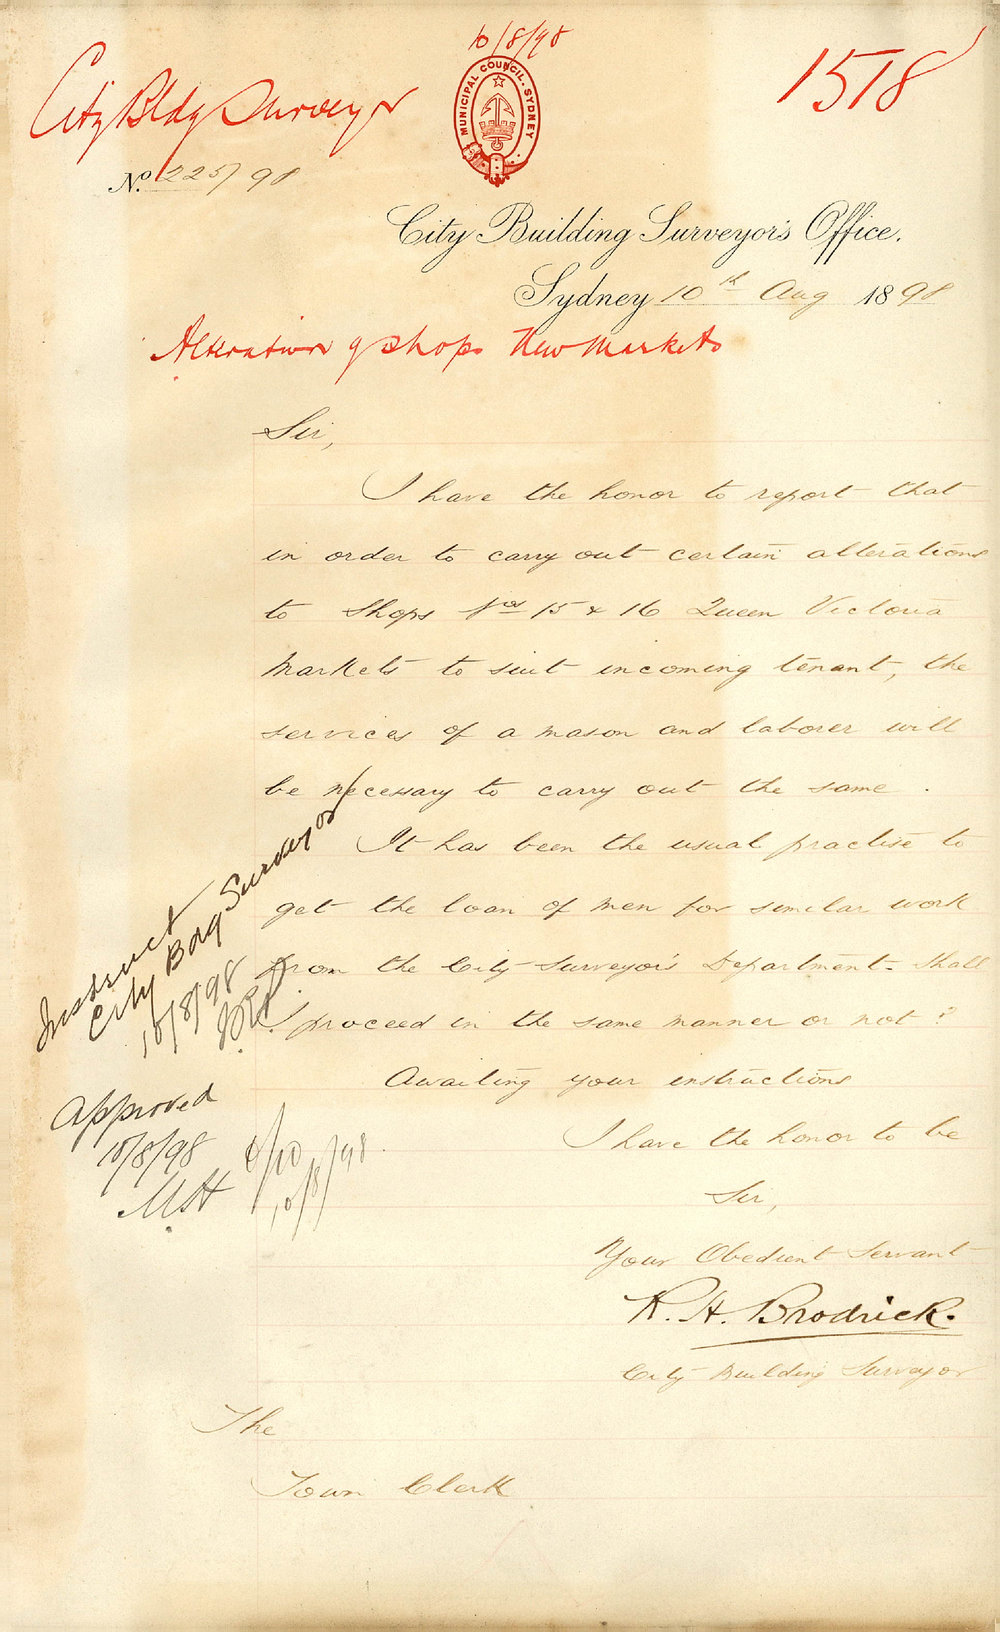 10/8/98
1518
City Bldg Surveyor
MUNICIPAL COUNCIL · SYDNEY
No. 225/98
City Building Surveyor's Office.
Sydney 10th Aug 1898
Alteration of Shops New Markets
Sir,
I have the honor to report that
in order to carry out certain alterations
to Shops Nos 15 & 16 Queen Victoria
Markets to suit incoming tenant, the
services of a mason and laborer will
be necessary to carry out the same.
It has been the usual practise to
get the loan of men for similar work
from the City Surveyor's Department. Shall
I proceed in the same manner or not?
Awaiting your instructions
I have the honor to be
Sir,
Your Obedient Servant
R. H. Brodrick.
City Building Surveyor
The
Town Clerk
Instruct
City Bdg Surveyor
10/8/98
Approved
10/8/98
10/8/98